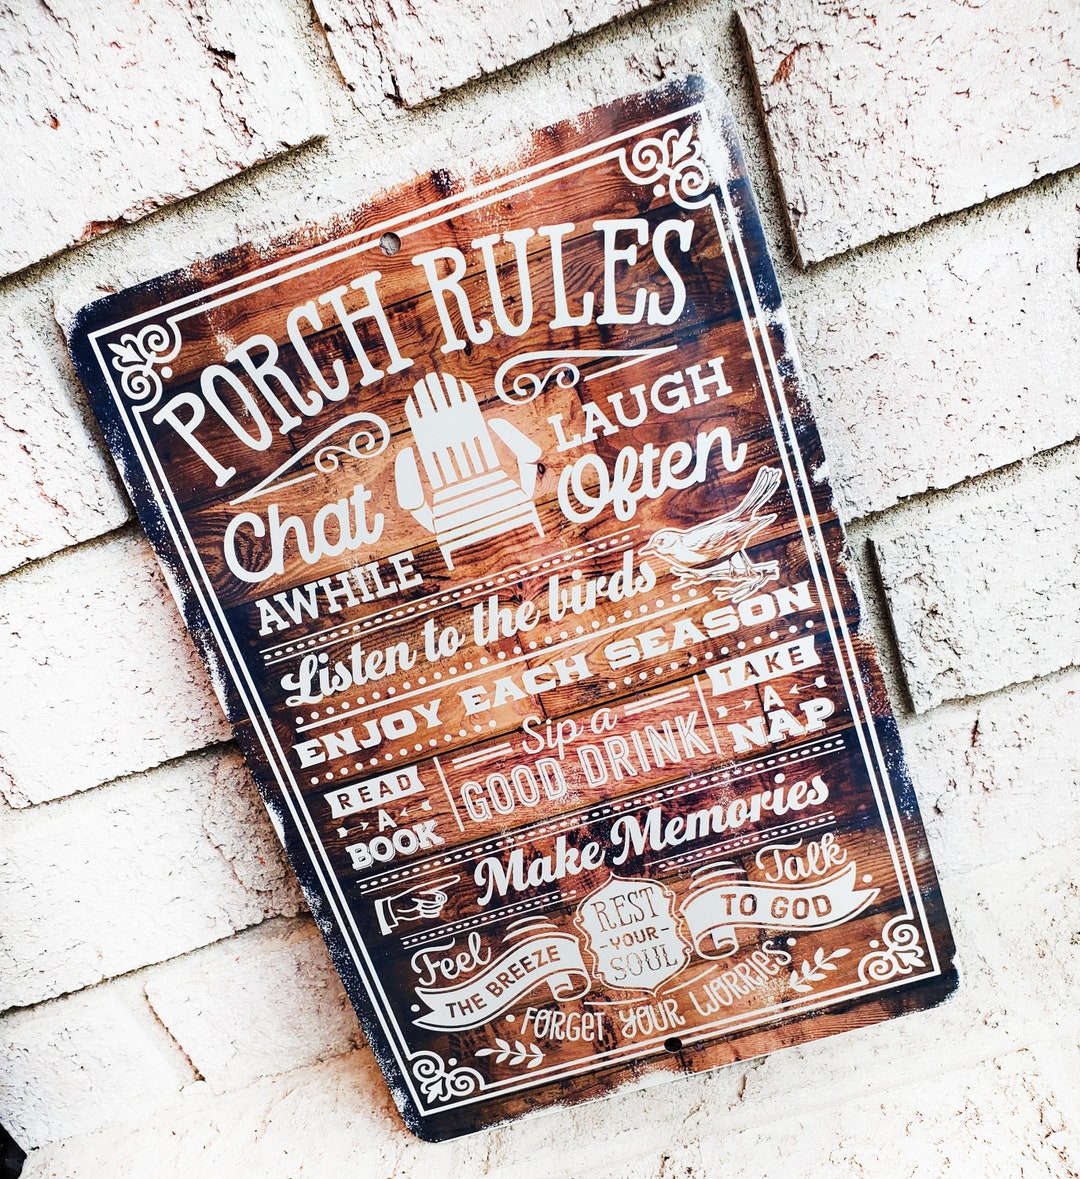 PORCH RULES
Chat
AWHILE
LAUGH
Often
Listen to the birds
ENJOY EACH SEASON
READ
A
BOOK
Sip a
GOOD DRINK
TAKE
A
NAP
Make Memories
Feel
THE BREEZE
REST
-YOUR-
SOUL
Talk
TO GOD
FORGET YOUR WORRIES